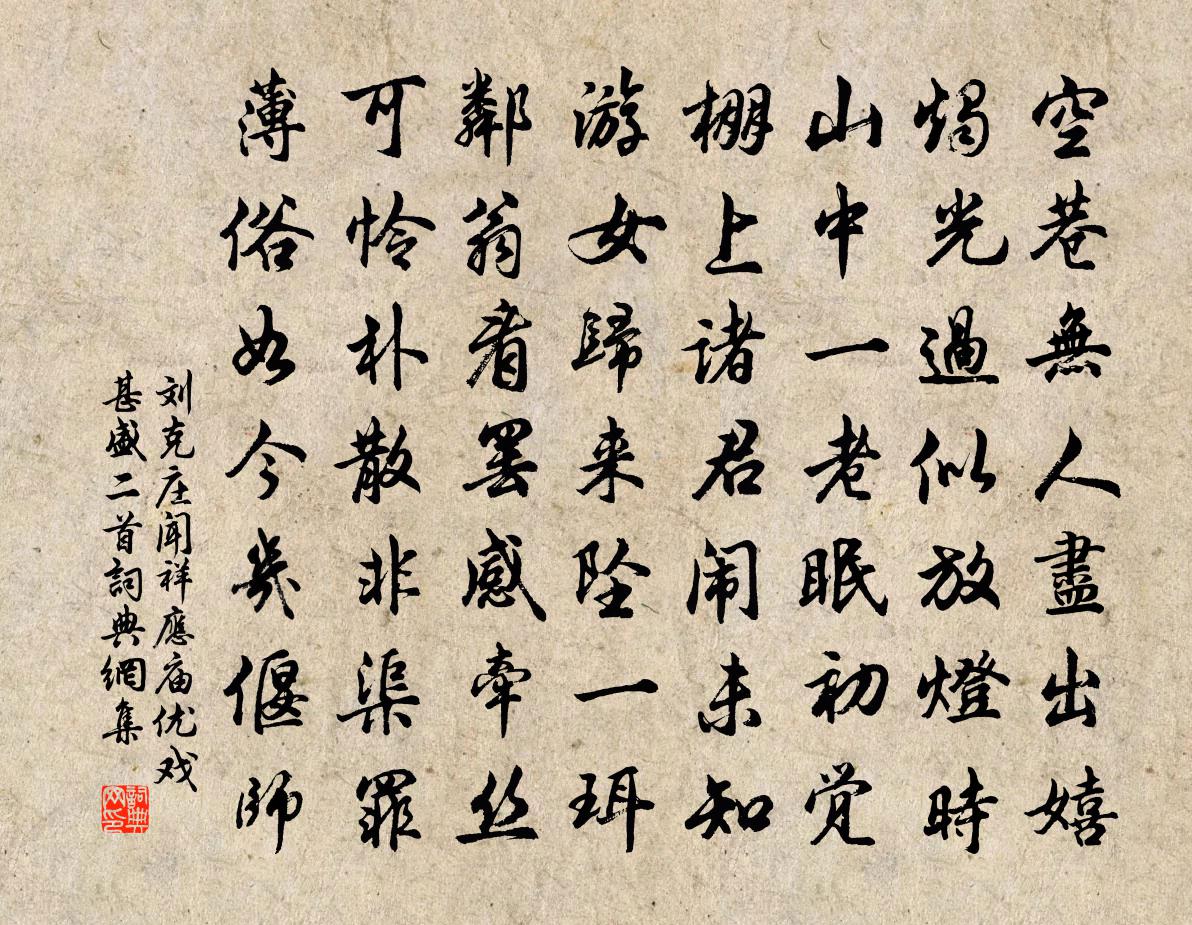 空巷無人盡出嬉
燭光過似放燈時
山中一老眠初觉
棚上诸君闹未知
游女歸来坠一珥
鄰翁看罢感牵丝
可怜朴散非渠罪
薄俗如今幾偃師
刘克庄闻祥應庙优戏
甚盛二首詞典網集
詞典网印